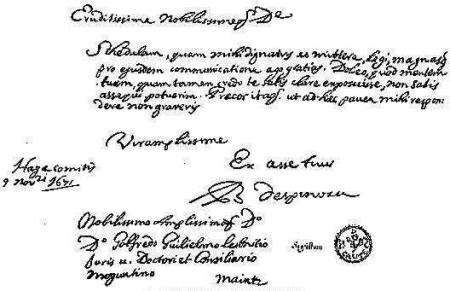 Eruditissime Nobilissimeqꝫ De
Schedulam, quam mihi dignatus es mittere, legi, magnasqꝫ
pro ejusdem communicatione ago gratias. Doleo, quod mentem
tuam, quam tamen credo te satis clare exposuisse, non satis
assequi potuerim. Precor itaqꝫ ut ad haec pauca mihi respon
dere non graveris
Vir amplissime
Ex asse tuus
Hagæ comitis
9 novri 1671
B despinoza
Nobilissimo Amplissimoqꝫ Do
Do Gotfredo Guilielmo Leibnitio
Juris u. Doctori et Consiliario
Moguntino
Maintz
Sigillum